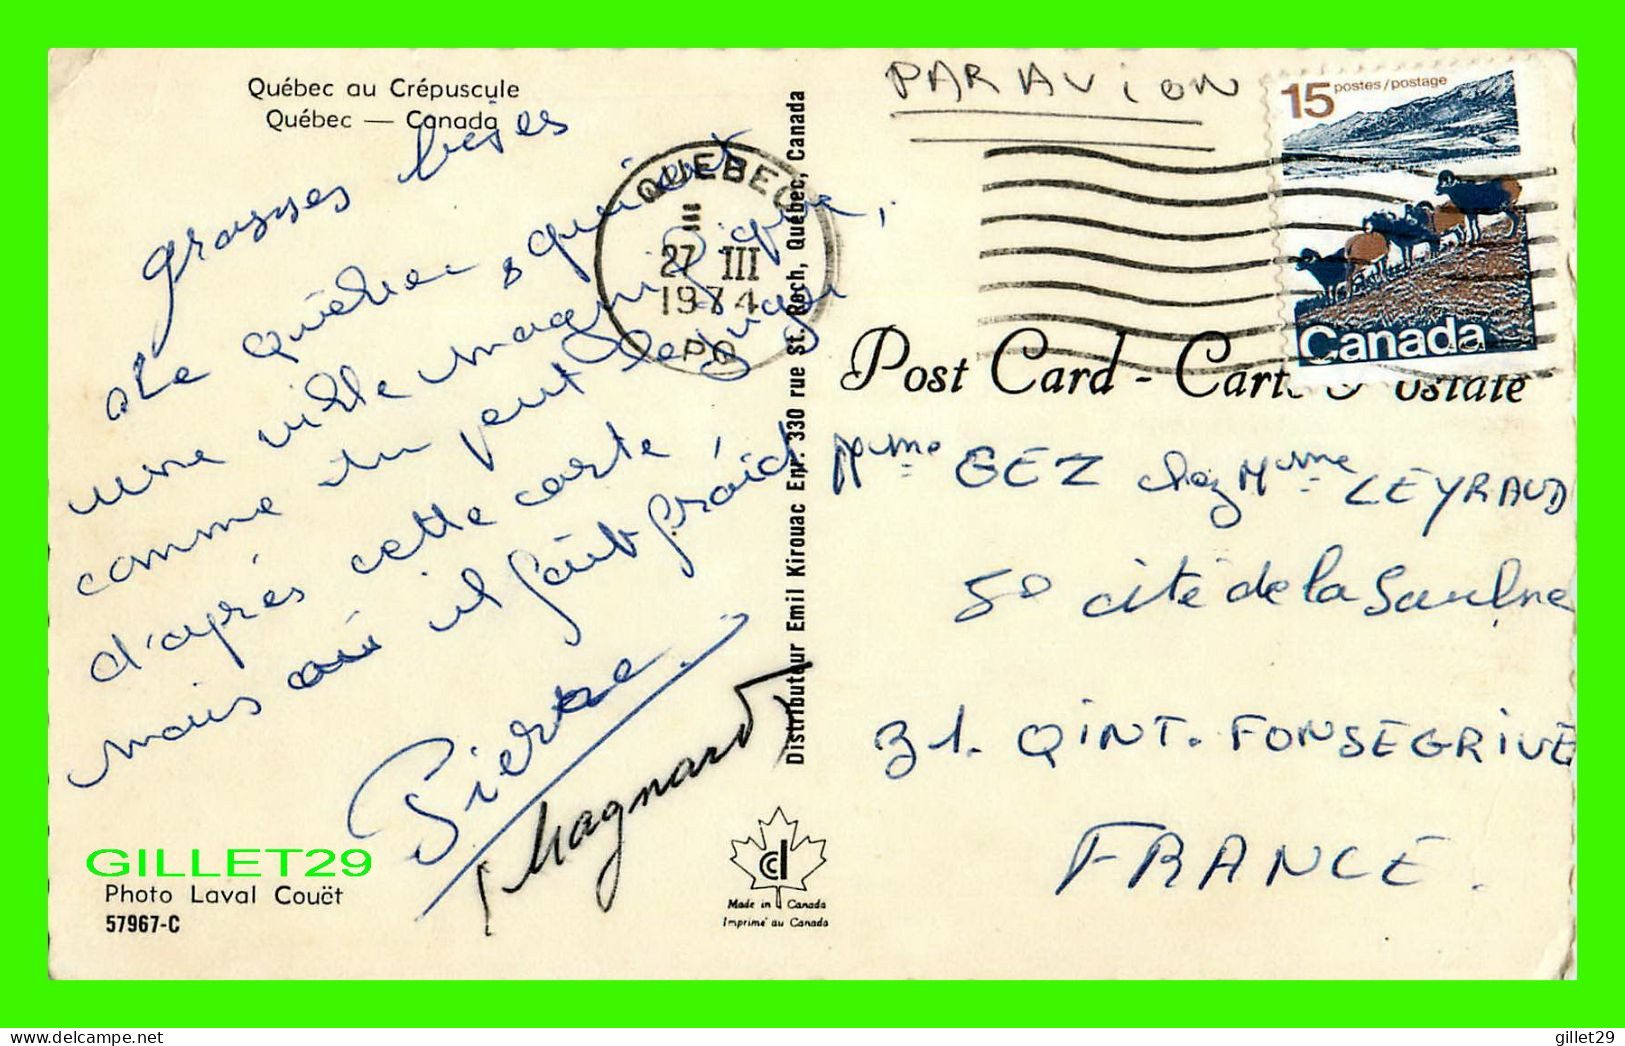 Québec au Crépuscule
Québec — Canada
grosses bises
de Québec, qui est
une ville magnifique,
comme tu peut le juger
d'après cette carte,
mais où il fait froid
Pierre.
(Magnard)
GILLET29
Photo Laval Couët
57967-C
QUEBEC
27 III
1974
P.Q
Distributeur Emil Kirouac Enr. 330 rue St. Roch, Québec, Canada
Made in Canada
Imprimé au Canada
PAR AVION
15 postes/postage
Canada
Post Card - Carte Postale
Mme GEZ chez Mme LEYRAUD
50 cité de la Saulne
31. QINT. FONSEGRIVE
FRANCE.
http://www.delcampe.net
gillet29